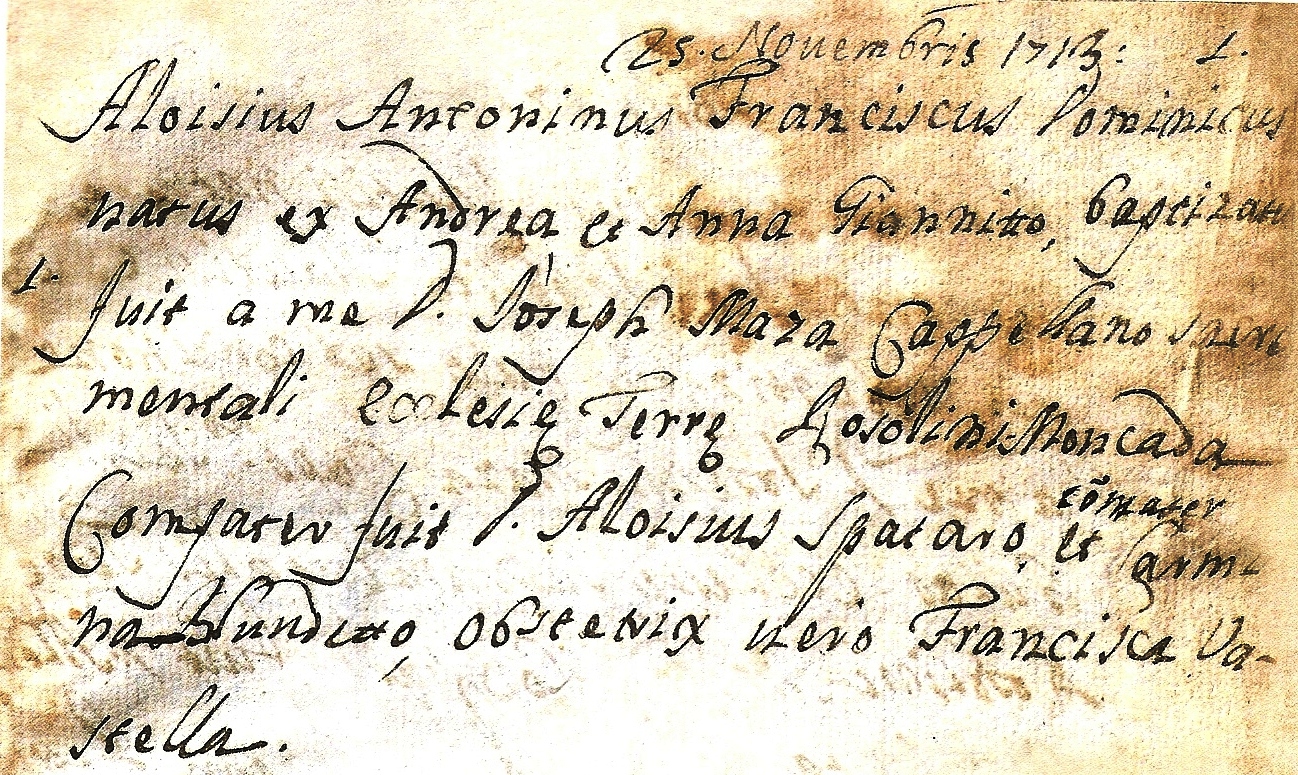 25. Novembris 1713: 1.
Aloisius Antoninus Franciscus Dominicus
natus ex Andrea et Anna Giannitto, baptizatu
1. fuit a me D. Joseph Maza Cappellano sacra
mentali ecclesię Terrę Rosolini Moncada
cõmater
Compater fuit D. Aloisius Spataro, et Carmi-
na Blunditto, obstetrix uero Francisca Va-
stella.